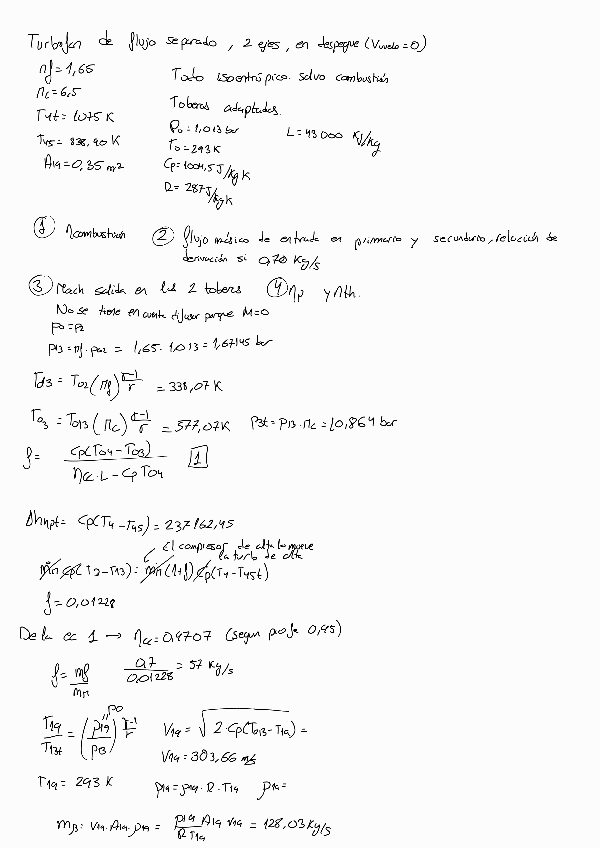 Turbofan de flujo separado, 2 ejes, en despegue (Vvuelo=0)
πf=1,65
Todo isoentrópico salvo combustión
πc=6,5
Toberas adaptadas.
T4t= 1075 K
P0=1,013 bar L=43000 KJ/kg
T45= 838,90 K
T0=293K
A19=0,35 m2
Cp=1004,5 J/kg K
R= 287 J/kg K
① ηcombustión ② flujo másico de entrada en primario y secundario, relación de
derivación si 0,70 Kg/s
③ Mach salida en las 2 toberas ④ ηp y ηth.
No se tiene en cuenta difusor porque M=0
p0=p2
p13=πf·p02 = 1,65·1,013=1,67145 bar
T013= T02(πf)^(r-1/r) = 338,07 K
T03=T013(πc)^(r-1/r) = 577,07K P3t=P13·πc=10,864 bar
f= cp(T04-T03) / ηcc·L-CpT04 [1]
Δhnpt= cp(T4-T45)=237162,45
El compresor de alta lo mueve
la turb de alta
f=0,01228
De la ec 1 → ηcc=0,9707 (segun profe 0,95)
f= mf/mp 0,7/0,01228 = 57 Kg/s
T19/T13t = (p19/p13)^(r-1/r) p0 V19= √2·Cp(T013-T19) =
V19=303,66 m/s
T19= 293 K p19=ρ19·R·T19 ρ19=
ms= V19·A19·ρ19 = p19 A19 V19 / R T19 = 128,03Kg/s